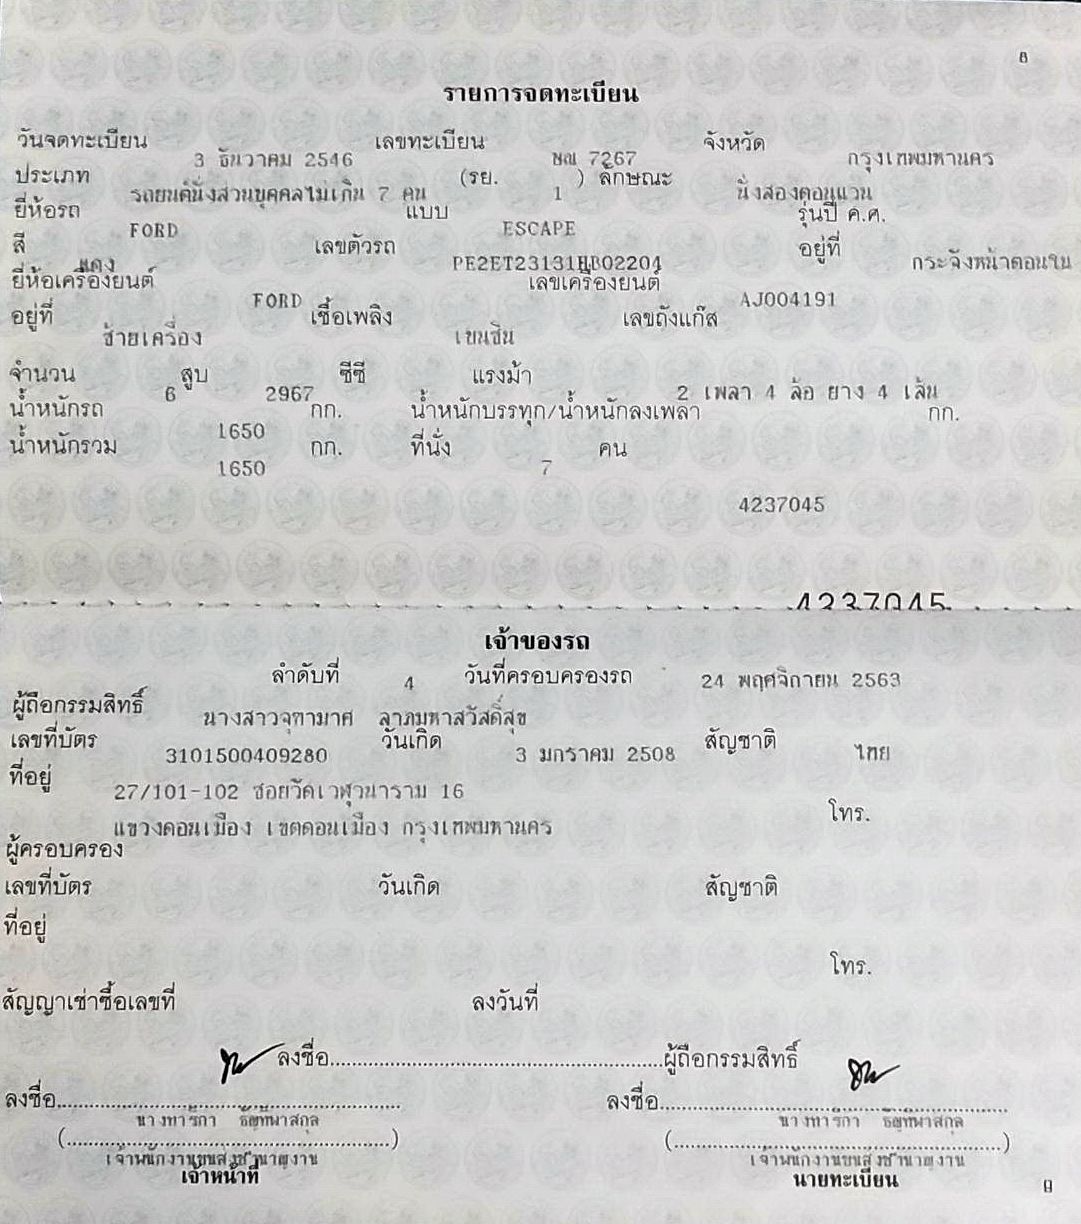 8
รายการจดทะเบียน
วันจดทะเบียน 3 ธันวาคม 2546 เลขทะเบียน ษณ 7267 จังหวัด กรุงเทพมหานคร
ประเภท รถยนต์นั่งส่วนบุคคลไม่เกิน 7 คน (รย. 1 ) ลักษณะ นั่งสองตอนแวน
ยี่ห้อรถ FORD แบบ ESCAPE รุ่นปี ค.ศ.
สี แดง เลขตัวรถ PE2ET23131HB02204 อยู่ที่ กระจังหน้าตอนใน
ยี่ห้อเครื่องยนต์ FORD เลขเครื่องยนต์ AJ004191
อยู่ที่ ซ้ายเครื่อง เชื้อเพลิง เบนซิน เลขถังแก๊ส
จำนวน 6 สูบ 2967 ซีซี แรงม้า 2 เพลา 4 ล้อ ยาง 4 เส้น
น้ำหนักรถ 1650 กก. น้ำหนักบรรทุก/น้ำหนักลงเพลา กก.
น้ำหนักรวม 1650 กก. ที่นั่ง 7 คน
4237045
4237045
เจ้าของรถ
ลำดับที่ 4 วันที่ครอบครองรถ 24 พฤศจิกายน 2563
ผู้ถือกรรมสิทธิ์ นางสาวจุฑามาศ ลาภมหาสวัสดิ์สุข
เลขที่บัตร 3101500409280 วันเกิด 3 มกราคม 2508 สัญชาติ ไทย
ที่อยู่ 27/101-102 ซอยวัดเวฬุวนาราม 16
แขวงดอนเมือง เขตดอนเมือง กรุงเทพมหานคร โทร.
ผู้ครอบครอง
เลขที่บัตร วันเกิด สัญชาติ
ที่อยู่
โทร.
สัญญาเช่าซื้อเลขที่ ลงวันที่
ลงชื่อ............................................ผู้ถือกรรมสิทธิ์
ลงชื่อ............................................ ลงชื่อ............................................
นางทาริกา ธัญทิพาสกุล นางทาริกา ธัญทิพาสกุล
(............................................) (............................................)
เจ้าพนักงานขนส่งชำนาญงาน เจ้าพนักงานขนส่งชำนาญงาน
เจ้าหน้าที่ นายทะเบียน